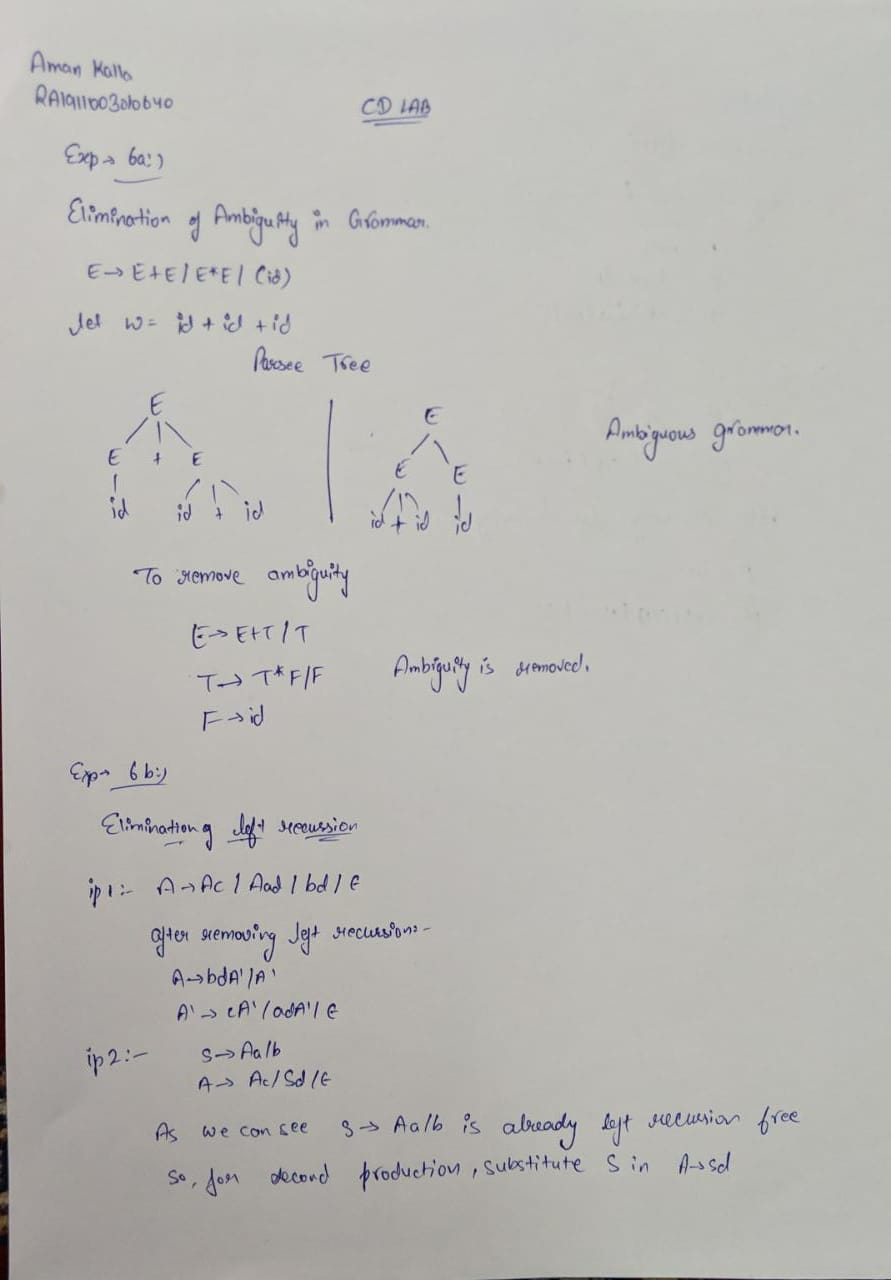 Aman Kalla
RA1911003010640
CD LAB
Exp → 6a:)
Elimination of Ambiguity in Grammar.
E → E+E / E*E / (id)
let w = id + id + id
Parsee Tree
E
E + E
id id + id
E
E E
id + id id
Ambiguous grammar.
To remove ambiguity
E → E+T / T
T → T*F/F
F → id
Ambiguity is removed.
Exp → 6b:)
Elimination of left recussion
ip1:- A → Ac / Aad / bd / ϵ
after removing left recussion:-
A → bdA'/A'
A' → cA'/adA'/ ϵ
ip2:- S → Aa/b
A → Ac/Sd/ϵ
As we can see S → Aa/b is already left recursion free
So, for second production, substitute S in A → Sd